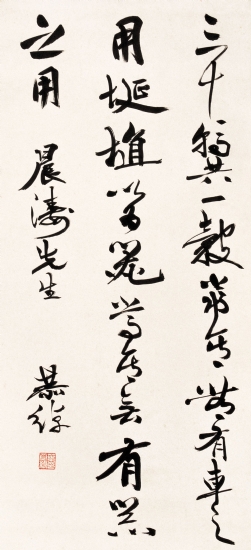 三十輻共一轂當其無有車之
用埏埴以為器當其無有器
之用
晨濤先生
恭綽